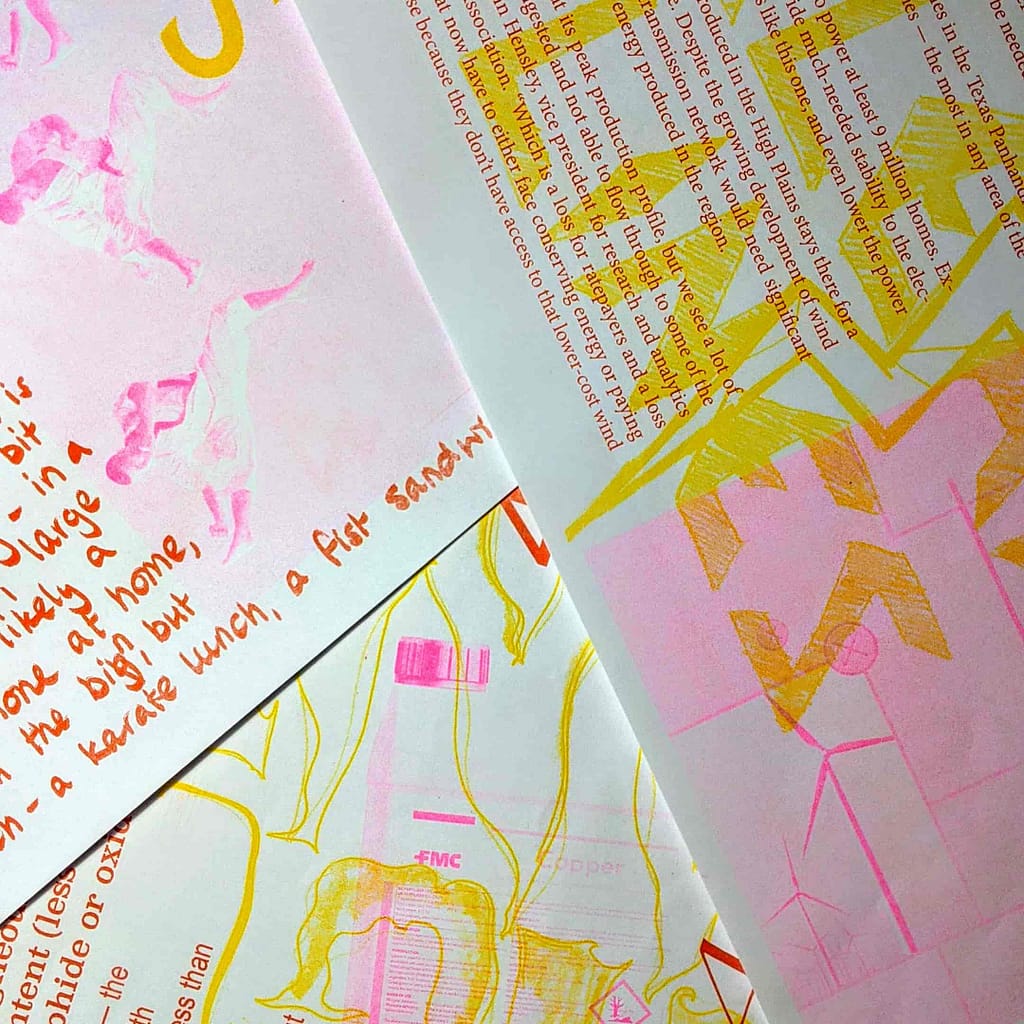 is
bit
- in a
large
likely a
one at home,
the bigh, but
ch - a karate lunch, a fist sandwi
be need
es in the Texas Panhan
es — the most in any area of the
o power at least 9 million homes. Ex-
ide much-needed stability to the elec-
s like this one, and even lower the power
oduced in the High Plains stays there for a
e. Despite the growing development of wind
ransmission network would need significant
energy produced in the region.
at its peak production profile, but we see a lot of
gested and not able to flow through to some of the
in Hensley, vice president for research and analytics
ssociation. “Which is a loss for ratepayers and a loss
at now have to either face conserving energy or paying
se because they don't have access to that lower-cost wind
FMC
Copper
neou
ntent (less
ohide or oxid
– the
th
ess than
nt